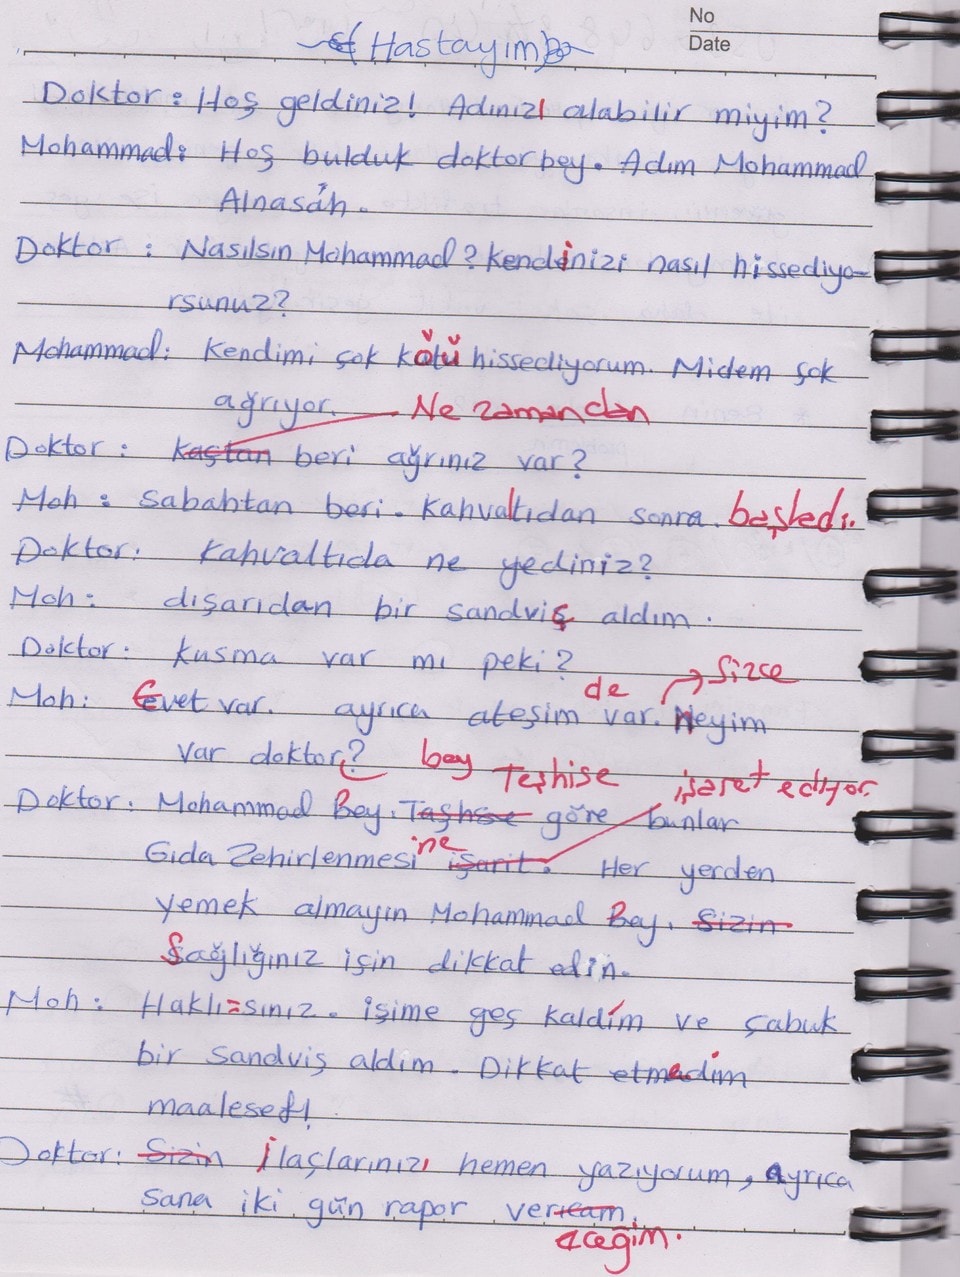 No
Date
Hastayım
Doktor : Hoş geldiniz! Adınızı alabilir miyim?
Mohammad: Hoş bulduk doktor bey. Adım Mohammad
Alnasáh.
Doktor : Nasılsın Mohammad? kendinizi nasıl hissediyo-
rsunuz?
Mohammad: Kendimi çok kötü hissediyorum. Midem çok
ağrıyor. Ne zamandan
Doktor : kaçtan beri ağrınız var?
Moh : sabahtan beri. kahvaltıdan sonra başladı.
Doktor: kahvaltıda ne yediniz?
Moh: dışarıdan bir sandviç aldım.
Doktor: kusma var mı peki?
de Sizce
Moh: Evet var. ayrıca ateşim var. Neyim
var doktor? bey Teşhise işaret ediyor.
Doktor: Mohammad Bey. Taşhise göre bunlar
Gıda Zehirlenmesi ne işarit. Her yerden
yemek almayın Mohammad Bey. Sizin
Sağlığınız için dikkat edin.
Moh: Haklı=sınız. işime geç kaldım ve çabuk
bir sandviş aldım. Dikkat etmedim
maalesef!
Doktor: Sizin İlaçlarınızı hemen yazıyorum, Ayrıca
sana iki gün rapor vericam.
aceğim.